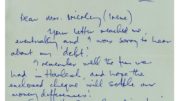 Dear Mrs. McCleery (Irene)
Your letter reached us
eventually and I was sorry to hear
about my 'debt'.
I remember well the fun we
had in Harlech, and hope the
enclosed cheque will settle our
money differences.